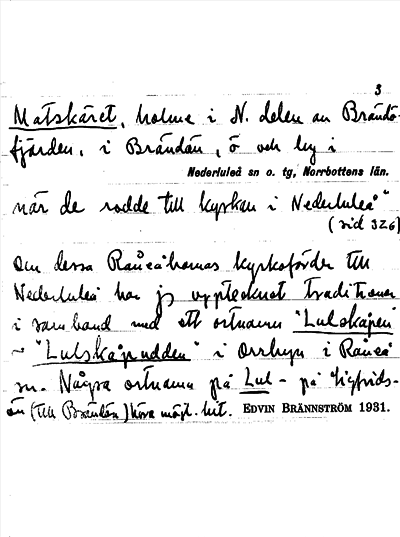 3
Matskäret, holme i N. delen av Brändö-
fjärden, i Brändön, ö och by i
Nederluleå sn o. tg, Norrbottens län.
när de rodde till kyrkan i Nederluleå"
(sid 326)
Om dessa Råneåbornas kyrkofärder till
Nederluleå har jag upptecknat traditioner
i samband med ett ortnamn "Lulskäpen"
~ "Lulskäpudden" i Orrbyn i Råneå
sn. Några ortnamn på Lul- på Sigfrids-
ön (till Brändön) höra möjl. hit. EDVIN BRÄNNSTRÖM 1931.